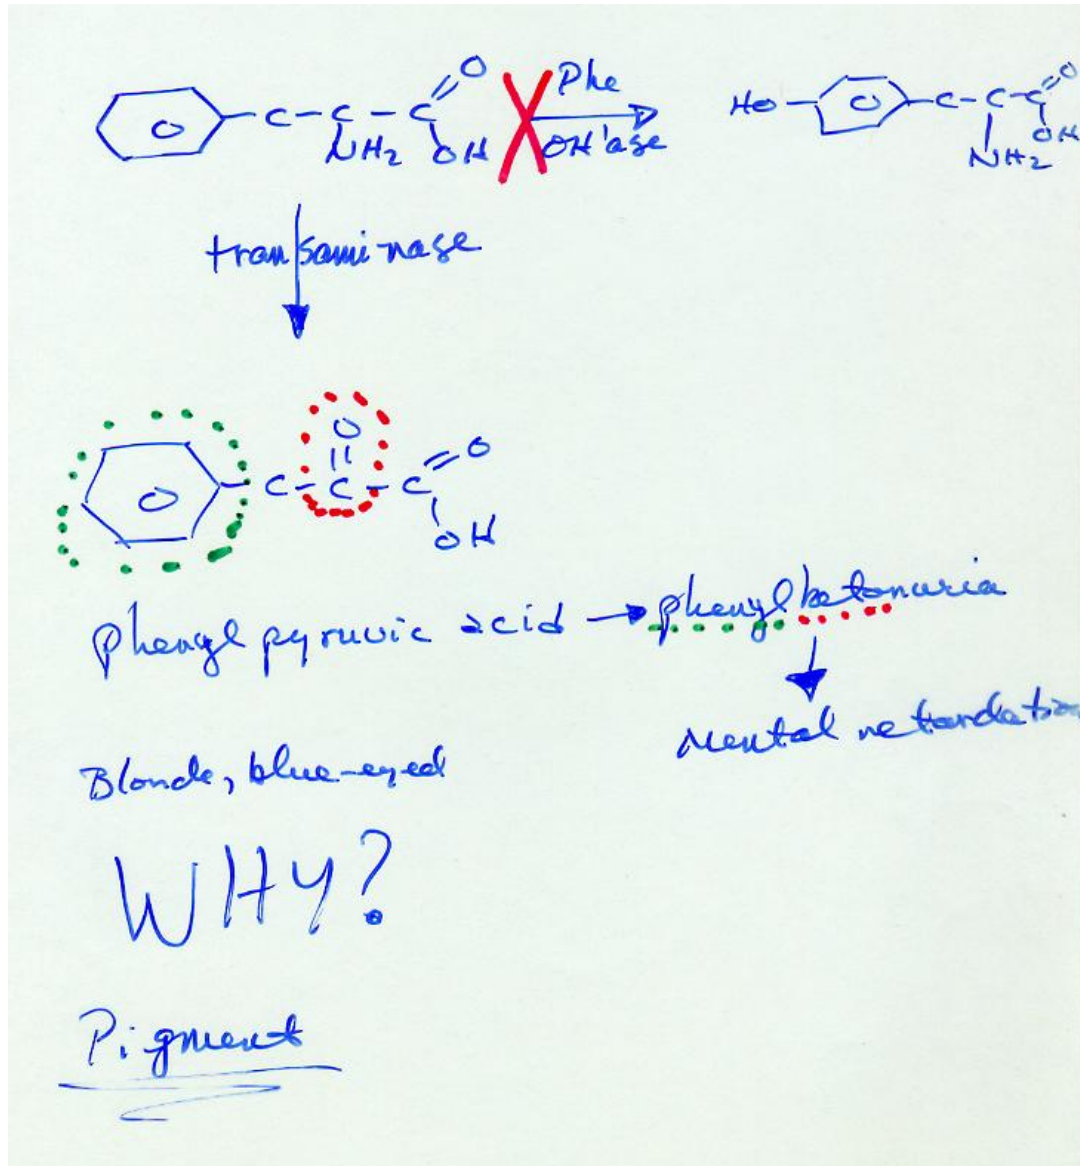 C-C-C=O
NH2 OH
Phe
OH'ase
HO C-C-C=O
NH2 OH
transaminase
O
C-C-C=O
OH
Phenyl pyruvic acid → phenylketonuria
Mental retardation
Blonde, blue-eyed
WHY?
Pigment